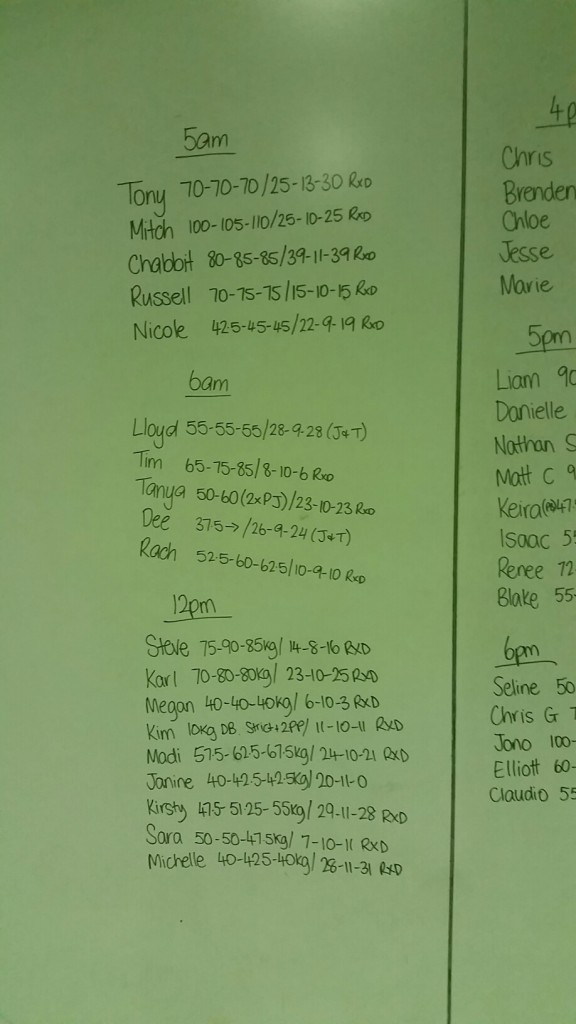 5am
Tony 70-70-70/25-13-30 RxD
Mitch 100-105-110/25-10-25 RxD
Chabbit 80-85-85/39-11-39 RxD
Russell 70-75-75/15-10-15 RxD
Nicole 42.5-45-45/22-9-19 RxD
6am
Lloyd 55-55-55/28-9-28 (J+T)
Tim 65-75-85/8-10-6 RxD
Tanya 50-60(2xPJ)/23-10-23 RxD
Dee 37.5→/26-9-24 (J+T)
Rach 52.5-60-62.5/10-9-10 RxD
12pm
Steve 75-90-85kg/ 14-8-16 RXD
Karl 70-80-80kg/ 23-10-25 RXD
Megan 40-40-40kg/ 6-10-3 RXD
Kim 10kg DB. Strict+2PP/ 11-10-11 RXD
Madi 57.5-62.5-67.5kg/ 24-10-21 RXD
Janine 40-42.5-42.5kg/20-11-0
Kirsty 47.5-51.25-55kg/ 29-11-28 RXD
Sara 50-50-47.5kg/ 7-10-11 RXD
Michelle 40-42.5-40kg/ 28-11-31 RXD
4p
Chris
Brenden
Chloe
Jesse
Marie
5pm
Liam 90
Danielle
Nathan S
Matt C 9
Keira 47.
Isaac 5
Renee 72
Blake 55-
6pm
Seline 50
Chris G 7
Jono 100-
Elliott 60-
Claudio 55